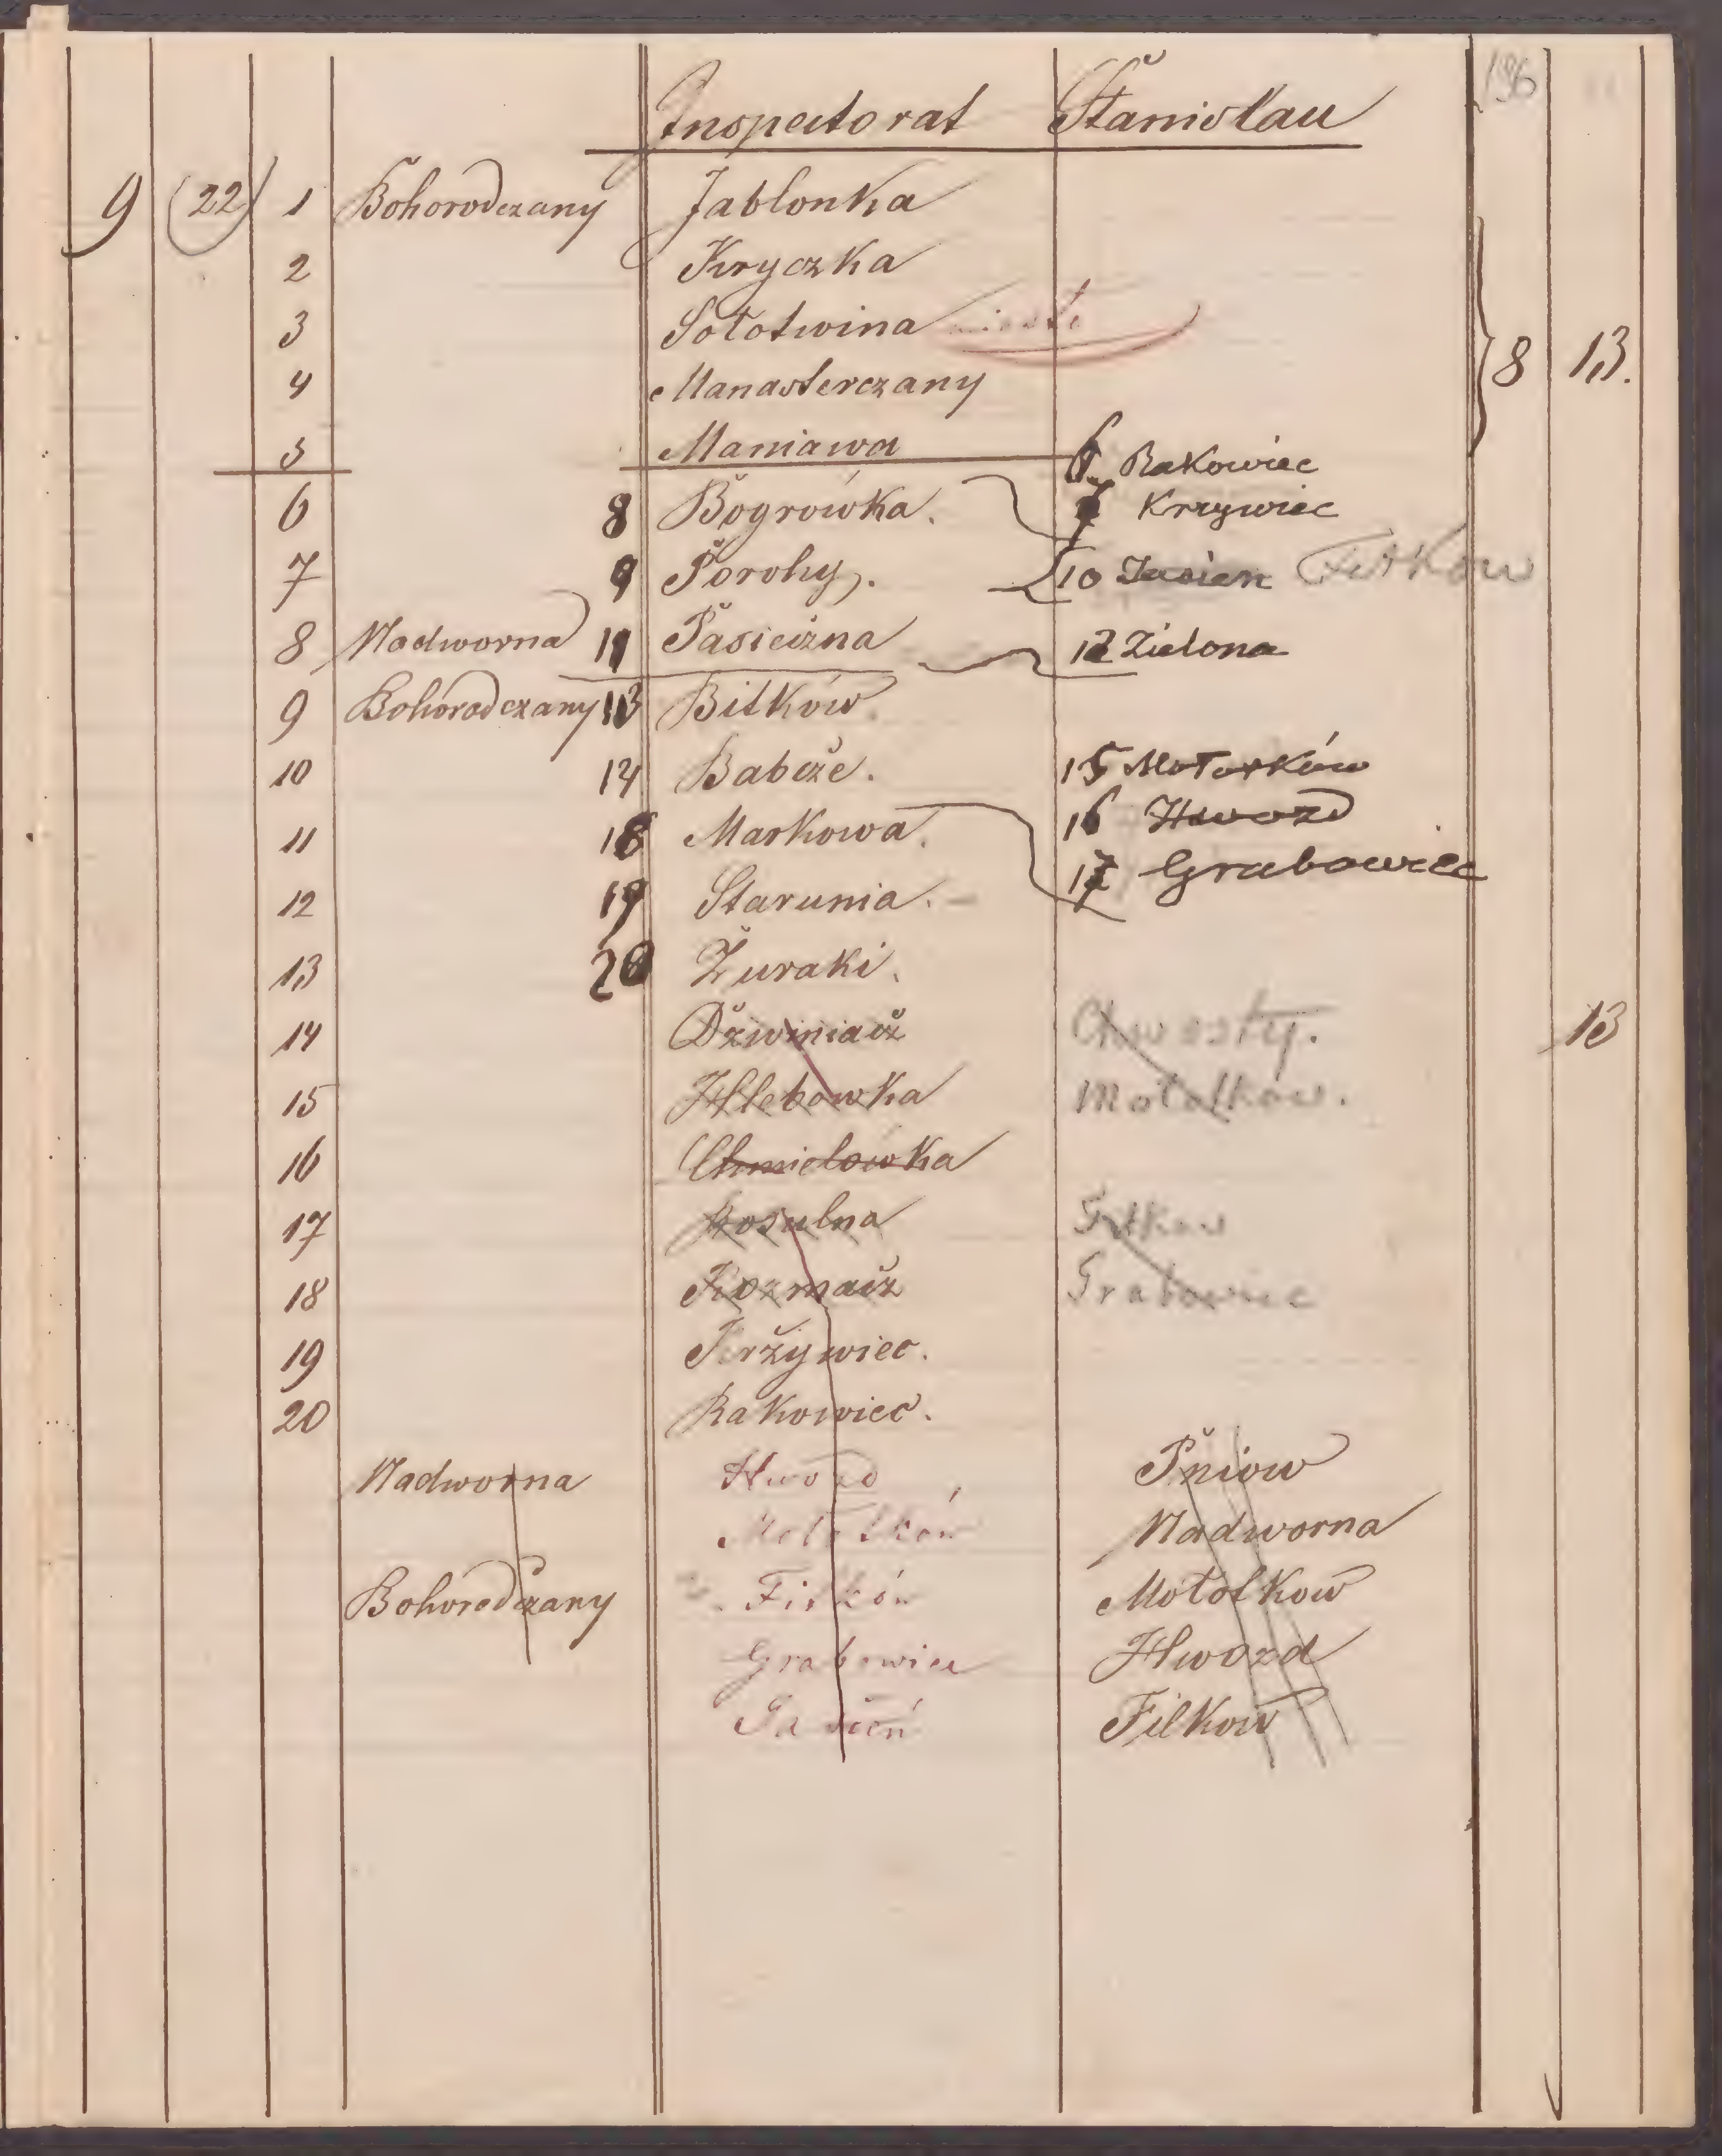 196
Inspectorat Stanislau
9 (22) 1 Bohorodczany Jablonka
2 Kryczka
3 Sołotwina
4 Manasterczany
8 13.
5 Maniawa
6 Rakowiec
6 8 Bogrówka. 7 Krzywiec
7 9 Porohy. 10 Jasien Fitkow
8 Nadworna 11 Pasieczna 12 Zielona
9 Bohorodczany 13 Bitków.
10 14 Babcze. 15 Mołotków
11 18 Markowa. 16 Hwozd
17 Grabowiec
12 19 Starunia.
13 20 Żuraki.
14 Dzwiniacz 13
15 Hlebowka Mołotkow.
16 Chmielówka
17 Rosulna Fitkow
18 Kozmacz Grabowiec
19 Krżywiec.
20 Rakowiec.
Nadworna Hwozd Pniow
Mołotków Nadworna
Bohorodczany Fitków Mołotkow
Grabowiec Hwozd
Jasień Filkow